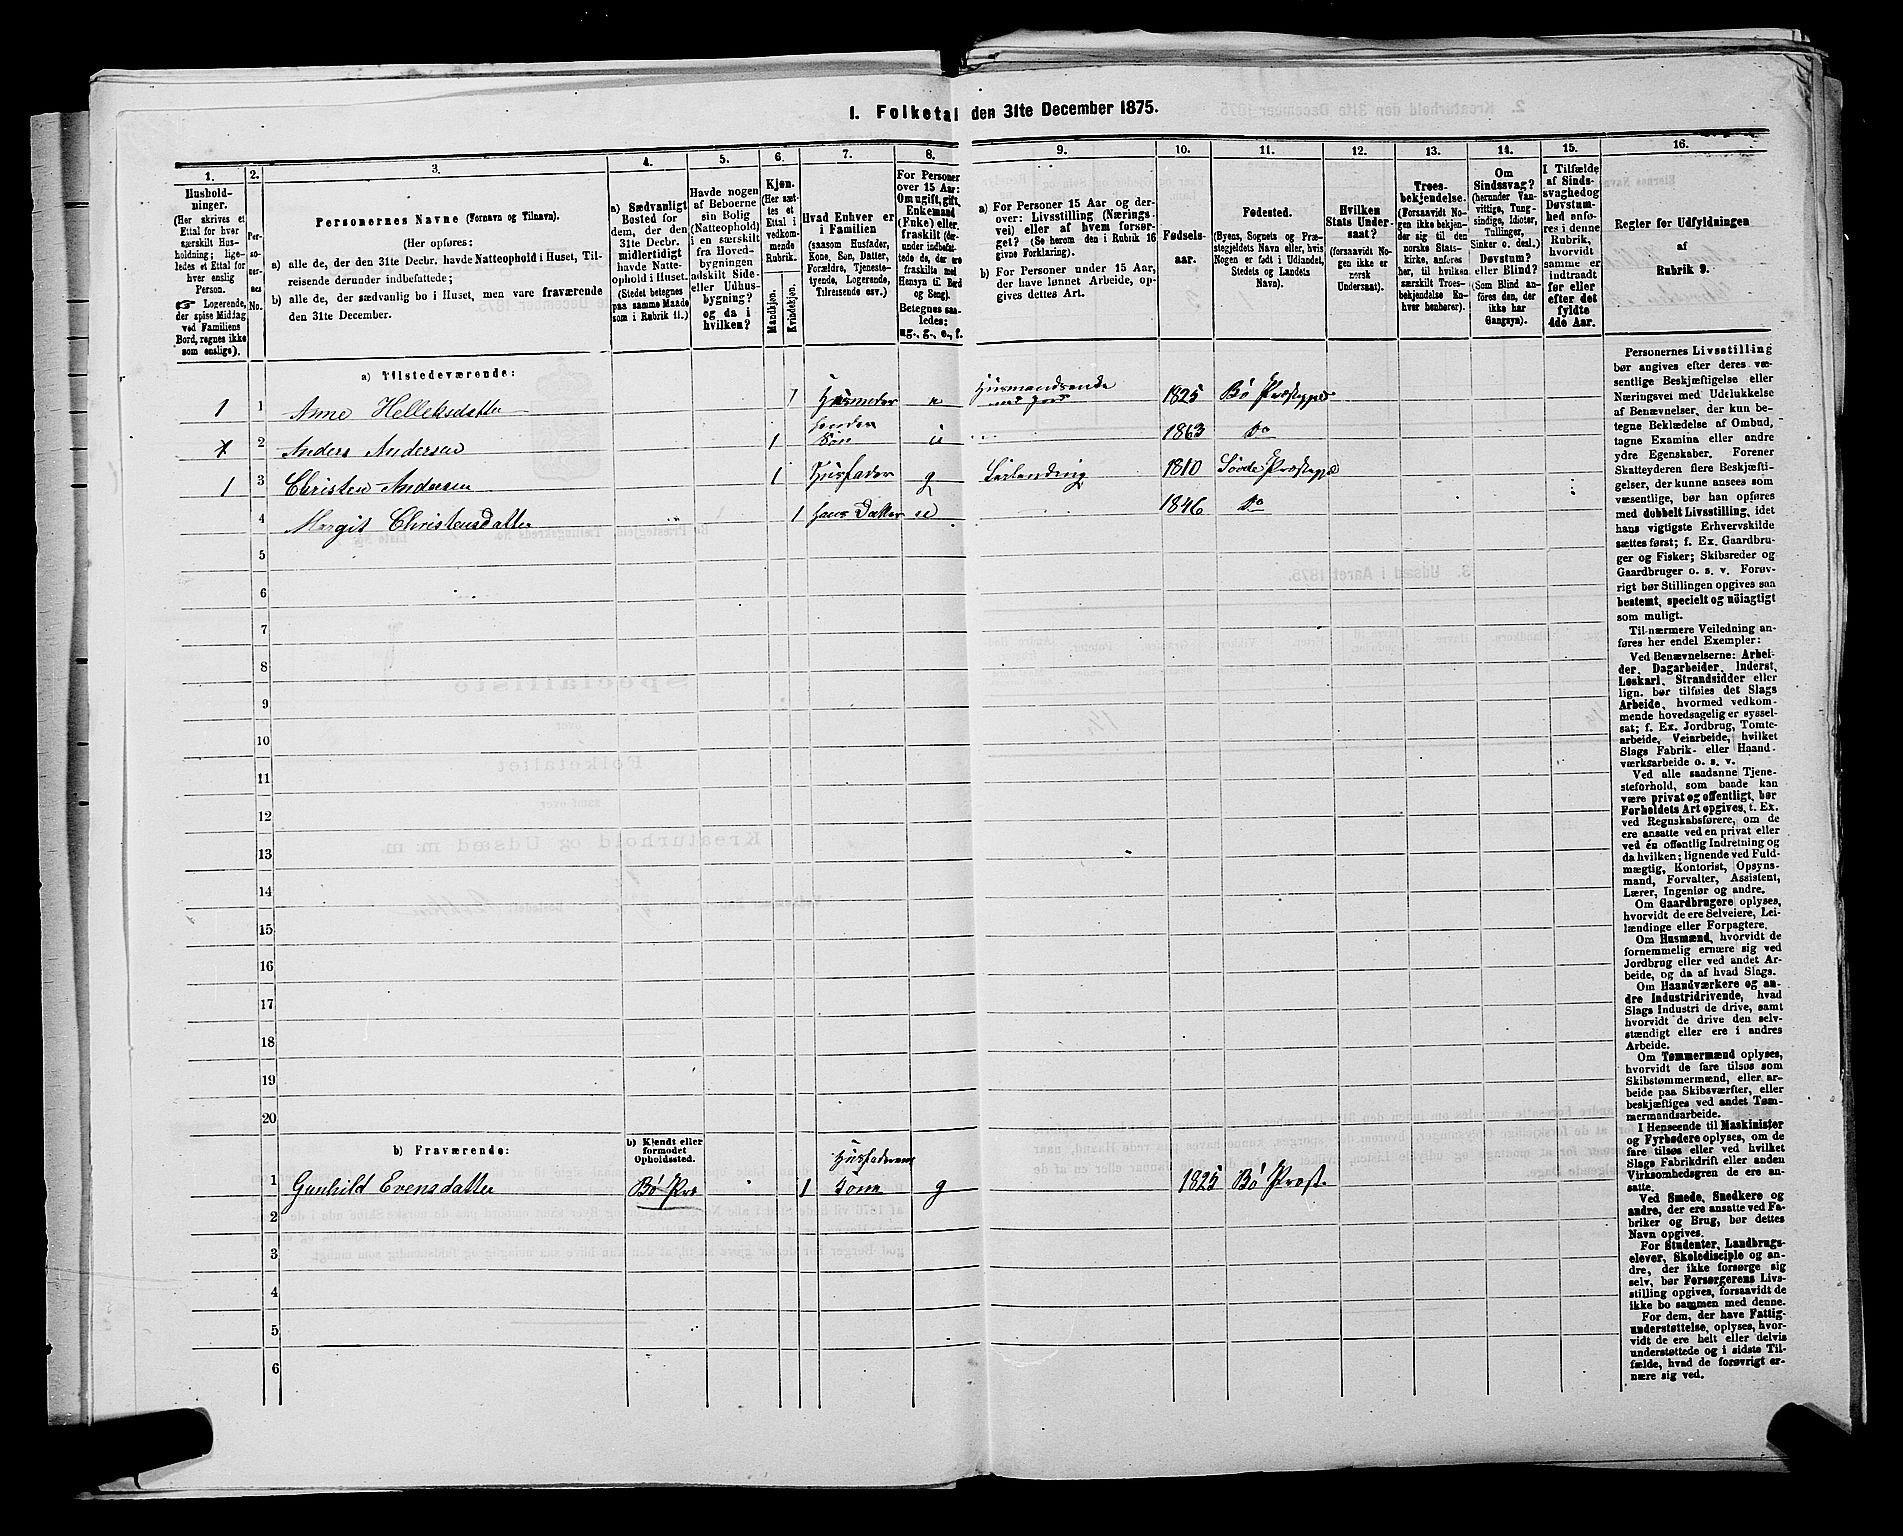 I. Folketal den 31te December 1875.
1.
Hushold-
ninger.
(Her skrives et
Ettal for hver
særskilt Hus-
holdning; lige-
ledes et Ettal for
hver enslig
Person.
☞ Logerende,
der spise Middag
ved Familiens
Bord, regnes ikke
som enslige).
2.
Per-
so-
ner-
nes
No.
3.
Personernes Navne (Fornavn og Tilnavn).
(Her opføres:
a) alle de, der den 31te Decbr. havde Natteophold i Huset, Til-
reisende derunder indbefattede;
b) alle de, der sædvanlig bo i Huset, men vare fraværende
den 31te December.
4.
a) Sædvanligt
Bosted for
dem, der den
31te Decbr.
midlertidigt
havde Natte-
ophold i Huset.
(Stedet betegnes
paa samme Maade
som i Rubrik 11.)
5.
Havde nogen
af Beboerne
sin Bolig
(Natteophold)
i en særskilt
fra Hoved-
bygningen
adskilt Side-
eller Udhus-
bygning?
og da i
hvilken?
6.
Kjøn.
(Her sæt-
tes et
Ettal i
vedkom-
mende
Rubrik.)
Mandkjøn.
Kvindekjøn.
7.
Hvad Enhver er
i Familien
(saasom Husfader,
Kone, Søn, Datter,
Forældre, Tjeneste-
tyende, Logerende,
Tilreisende osv.)
8.
For Personer
over 15 Aar:
Om ugift, gift,
Enkemand
(Enke) eller
fraskilt (der-
under indbefat-
tede de, der ere
fraskilte med
Hensyn til Bord
og Seng).
Betegnes saa-
ledes:
ug., g., e., f.
9.
a) For Personer 15 Aar og der-
over: Livsstilling (Nærings-
vei) eller af hvem forsør-
get? (Se herom den i Rubrik 16
givne Forklaring).
b) For Personer under 15 Aar,
der have lønnet Arbeide, op-
gives dettes Art.
10.
Fødsels-
aar.
11.
Fødested.
(Byens, Sognets og Præ-
stegjeldets Navn eller, hvis
Nogen er født i Udlandet,
Stedets og Landets
Navn).
12.
Hvilken
Stats Under-
saat?
(forsaavidt No-
gen ikke er
norsk
Undersaat).
13.
Troes-
bekjendelse.
(Forsaavidt No-
gen ikke bekjen-
der sig til den
norske Stats-
kirke, anføres
her, til hvilken
særskilt Troes-
bekjendelse En-
hver henhører).
14.
Om
Sindssvag?
(herunder Van-
vittige, Tung-
sindige, Idioter,
Tullinger,
Sinker o. desl.)
Døvstum?
eller Blind?
(Som Blind an-
føres den, der
ikke har
Gangsyn).
15.
I Tilfælde
af Sinds-
svaghed og
Døvstum-
hed anfø-
res i denne
Rubrik,
hvorvidt
samme er
indtraadt
før eller
efter det
fyldte
4de Aar.
16.
Regler for Udfyldningen
af
Rubrik 9.
a) Tilstedeværende:
1 1 Anne Helleksdatter 1 Husmoder e Husmandsenke med Jord 1825 Bø Præstegjeld
2 Anders Andersen 1 hendes Søn u 1863 Do
1 3 Christen Andersen 1 Husfader g 1810 Sovde Præstegjeld
4 Margit Christensdatter 1 hans Datter u 1846 Do
5
6
7
8
9
10
11
12
13
14
15
16
17
18
19
20
b) Fraværende:
b) Kjendt eller
formodet
Opholdssted.
1 Gunhild Evensdatter Bø Præ 1 Husfaderens Kone g 1825 Bø Præst.
2
3
4
5
6
Personernes Livsstilling
bør angives efter deres væ-
sentlige Beskjæftigelse eller
Næringsvei med Udelukkelse
af Benævnelser, der kun be-
tegne Beklædelse af Ombud,
tagne Examina eller andre
ydre Egenskaber. Forener
Skatteyderen flere Beskjæfti-
gelser, der kunne ansees som
væsentlige, bør han opføres
med dobbelt Livsstilling, idet
hans vigtigste Erhvervskilde
sættes først; f. Ex. Gaardbru-
ger og Fisker; Skibsreder og
Gaardbruger o. s. v. Forøv-
rigt bør Stillingen opgives saa
bestemt, specielt og nöiagtigt
som muligt.
Til nærmere Veiledning an-
føres her endel Exempler:
Ved Benævnelserne: Arbei-
der, Dagarbeider, Inderst,
Løskarl, Strandsidder eller
lign. bør tilføies det Slags
Arbeide, hvormed vedkom-
mende hovedsagelig er syssel-
sat; f. Ex. Jordbrug, Tomte-
arbeide, Veiarbeide, hvilket
Slags Fabrik- eller Haand-
værksarbeide o. s. v.
Ved alle saadanne Tjene-
steforhold, som baade kan
være privat og offentligt, bør
Forholdets Art opgives, t. Ex.
ved Regnskabsførere, om de
ere ansatte ved en privat eller
ved én offentlig Indretning og
da hvilken; lignende ved Fuld-
mægtig, Kontorist, Opsyns-
mand, Forvalter, Assistent,
Lærer, Ingeniør og andre.
Om Gaardbrugere oplyses,
hvorvidt de ere Selveiere, Lei-
lændinge eller Forpagtere.
Om Husmænd, hvorvidt de
fornemmelig ernære sig ved
Jordbrug eller ved andet Ar-
beide, og da af hvad Slags.
Om Haandværkere og an-
dre Industridrivende, hvad
Slags Industri de drive, samt
hvorvidt de drive den selv-
stændigt eller ere i andres
Arbeide.
Om Tømmermænd oplyses,
hvorvidt de fare tilsøs som
Skibstømmermænd, eller ar-
beide paa Skibsværfter, eller
beskjæftiges ved andet Tøm-
mermandsarbeide.
I Henseende til Maskinister
og Fyrbødere oplyses, om de
fare tilsøs eller ved hvilket
Slags Fabrikdrift eller anden
Virksomhedsgren de ere an-
satte.
Ved Smede, Snedkere og
andre, der ere ansatte ved Fa-
briker og Brug, bør dettes
Navn opgives.
For Studenter, Landbrugs-
elever, Skoledisciple og an-
dre, der ikke forsørge sig
selv, bør Forsørgerens Livs-
stilling opgives, forsaavidt de
ikke bo sammen med denne.
For dem, der have Fattig-
understøttelse, oplyses, hvor-
vidt de ere helt eller delvis
understøttede og i sidste Til-
fælde, hvad de forøvrigt er-
nære sig ved.